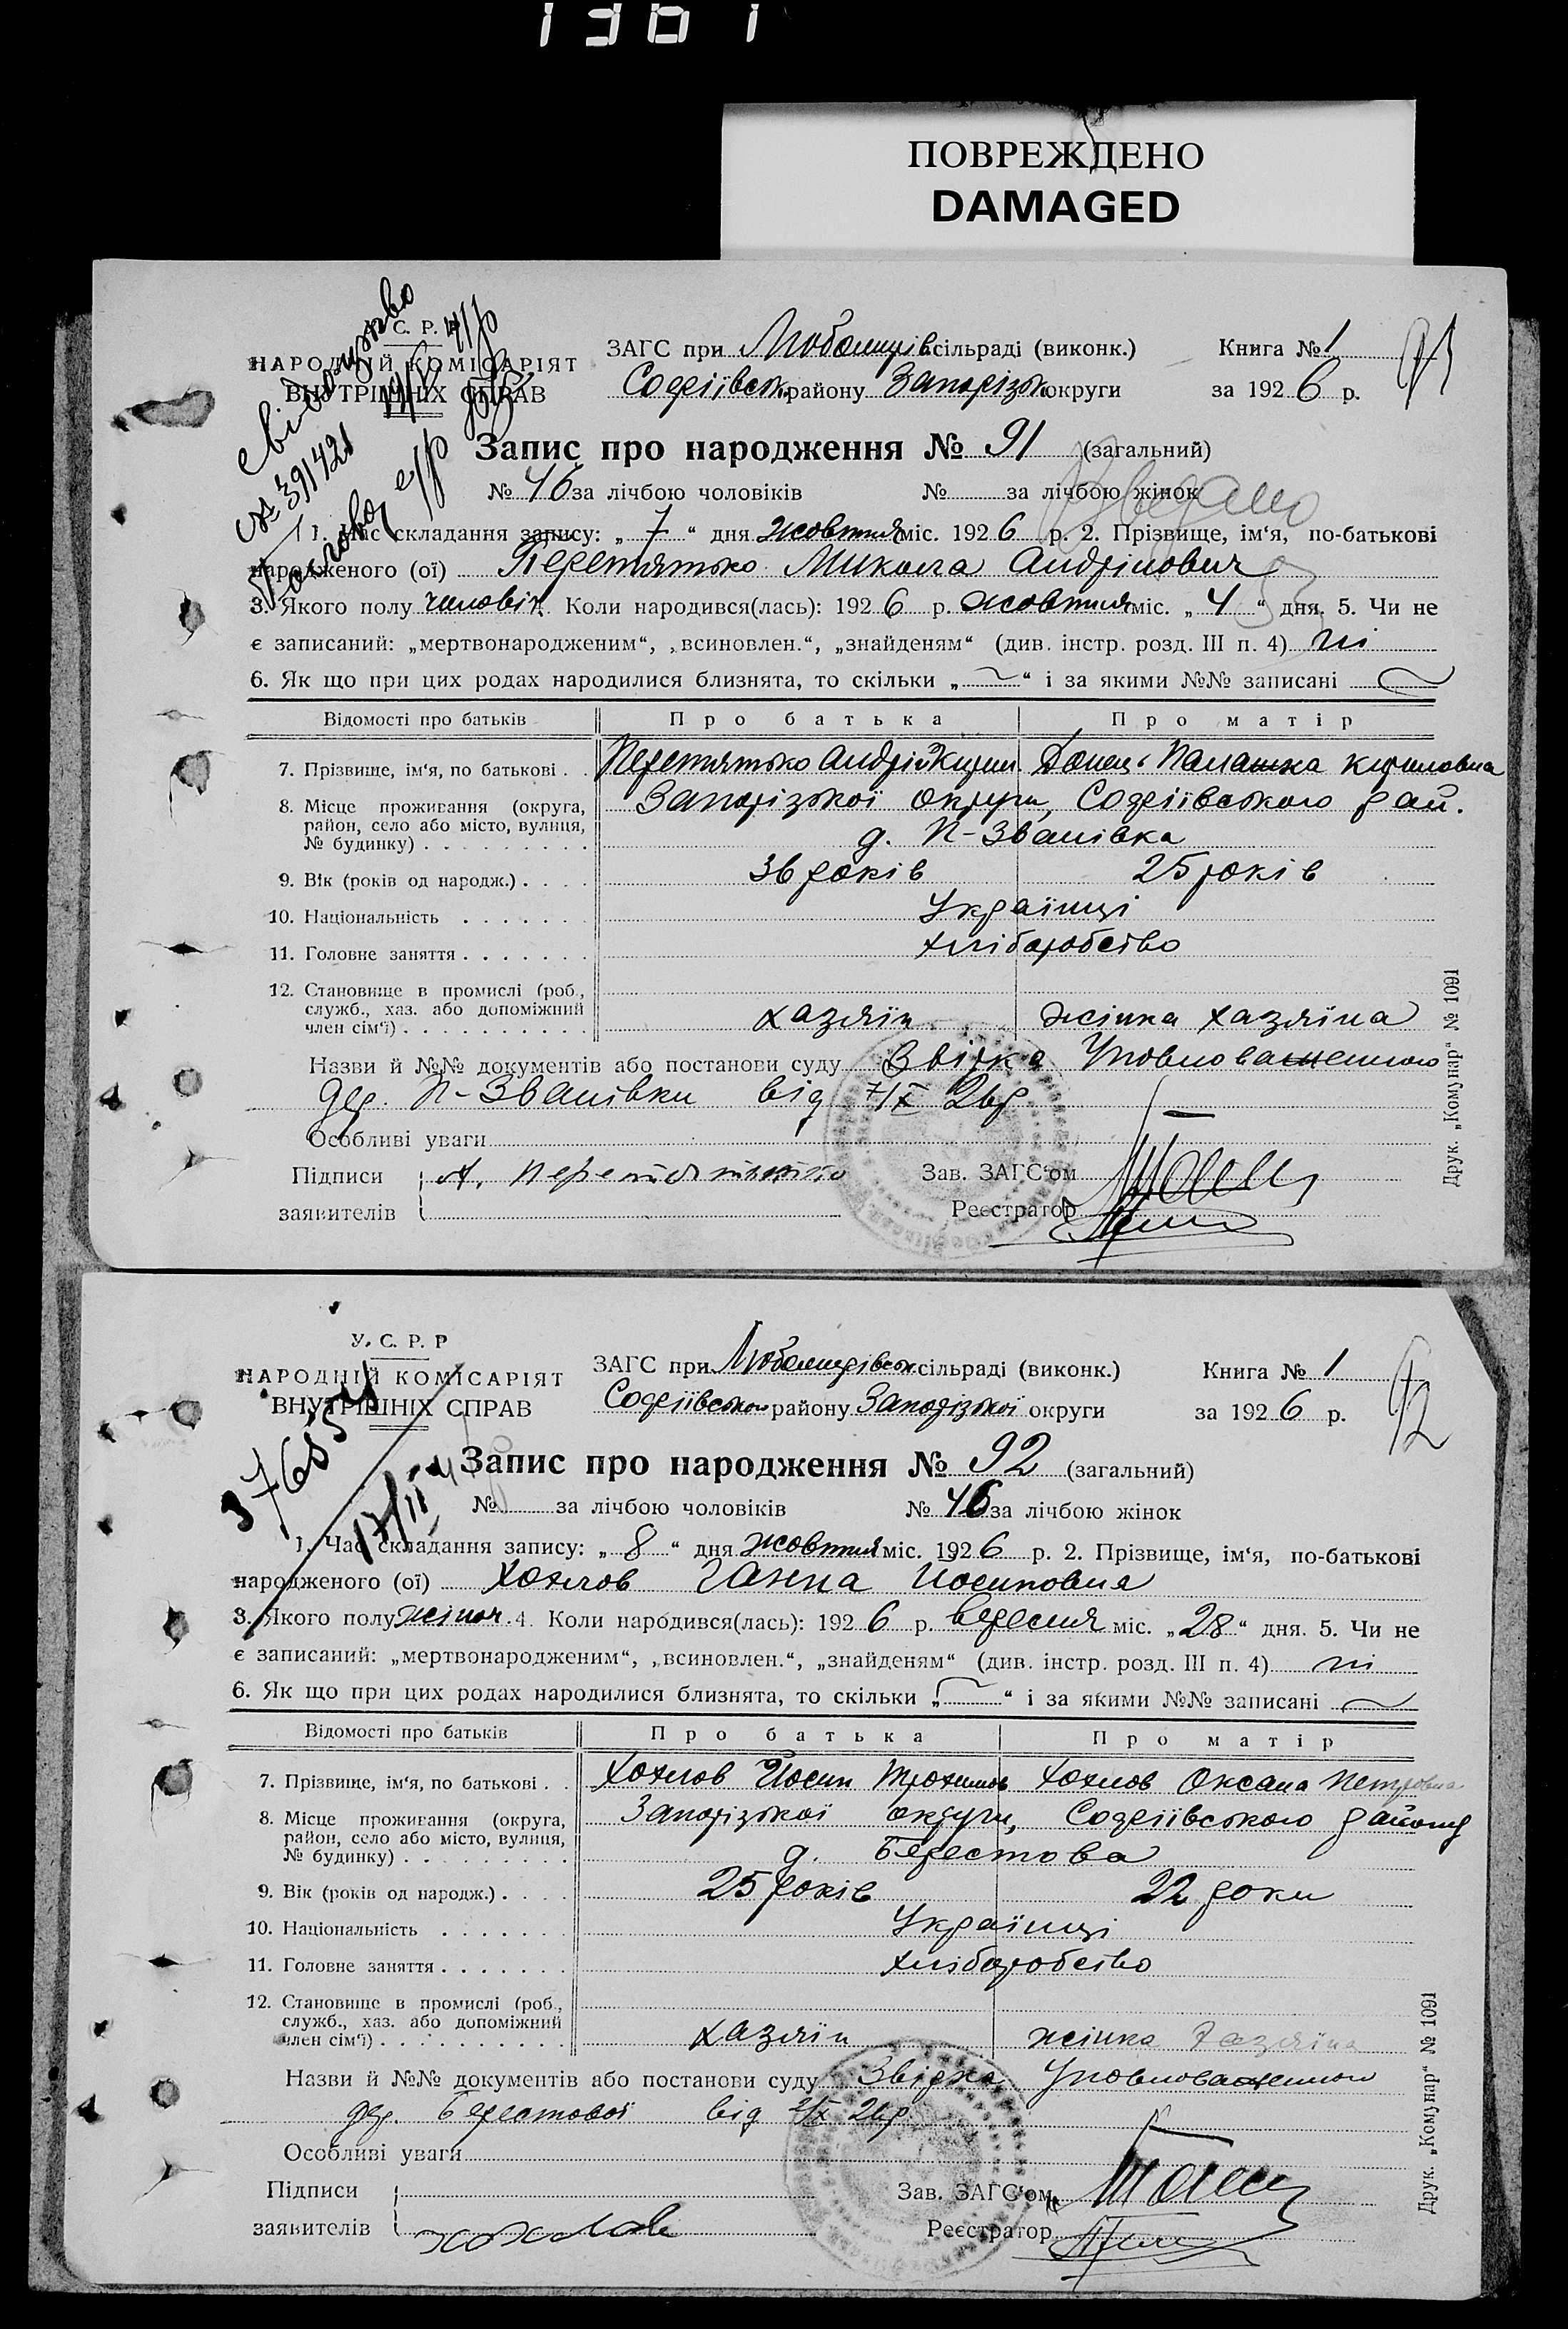 1361
ПОВРЕЖДЕНО
DAMAGED
Свідоцтво
№ 391421
С. Р. Р.
НАРОДНІЙ КОМІСАРІЯТ
ВНУТРІШНІХ СПРАВ
ЗАГС при Любомирів сільраді (виконк.) Книга № 1
Софіївськ району Запорізьк округи за 1926 р.
91
Запис про народження № 91 (загальний)
№ 46 за лічбою чоловіків № за лічбою жінок
1. Час складання запису: „ 7 “ дня жовтня міс. 1926 р. 2. Прізвище, ім‘я, по-батькові
народженого (ої) Перетятько Микола Андріиович
3. Якого полу чоловіч. Коли народився(лась): 1926 р. жовтня міс. „ 4 “ дня. 5. Чи не
є записаний: „мертвонародженим“, „всиновлен.“, „знайденям“ (див. інстр. розд. III п. 4) ні
6. Як що при цих родах народилися близнята, то скільки „ “ і за якими №№ записані
Відомості про батьків Про батька Про матір
7. Прізвище, ім‘я, по батькові . . Перетятько Андрій Донець Палашка Кириловна
8. Місце проживання (округа, район, село або місто, вулиця, № будинку) . . . . . . . . . Запорізької округи, Софіївського рай.
д. П-Званівка
9. Вік (років од народж.) . . . . 36 років 25 років
10. Національність . . . . . . Українці
11. Головне заняття . . . . . . . хліборобство
12. Становище в промислі (роб., служб., хаз. або допоміжний член сім‘ї) . . . . . . . . . . хазяїн жінка хазяїна
Назви й №№ документів або постанови суду Звірка Уповноваженного
дер. П-Званівки від 7/X 26р
Особливі уваги
Підписи А. Перетятько Зав. ЗАГС‘ом
заявителів Реєстратор
Друк. „Комунар“ № 1091
У. С. Р. Р
НАРОДНІЙ КОМІСАРІЯТ
ВНУТРІШНІХ СПРАВ
ЗАГС при Любомирівськ сільраді (виконк.) Книга № 1
Софіївського району Запорізької округи за 1926 р.
92
Запис про народження № 92 (загальний)
№ за лічбою чоловіків № 46 за лічбою жінок
1. Час складання запису: „ 8 “ дня жовтня міс. 1926 р. 2. Прізвище, ім‘я, по-батькові
народженого (ої) Хохлов Ганна Йосиповна
3. Якого полу жіноч. 4. Коли народився(лась): 1926 р. вересня міс. „ 28 “ дня. 5. Чи не
є записаний: „мертвонародженим“, „всиновлен.“, „знайденям“ (див. інстр. розд. III п. 4) ні
6. Як що при цих родах народилися близнята, то скільки „ “ і за якими №№ записані
Відомості про батьків Про батька Про матір
7. Прізвище, ім‘я, по батькові . . Хохлов Йосип Трохимов Хохлов Оксана Петровна
8. Місце проживання (округа, район, село або місто, вулиця, № будинку) . . . . . . . . . Запорізької округи, Софіївського району
д. Берестова
9. Вік (років од народж.) . . . . 25 років 22 роки
10. Національність . . . . . . Українці
11. Головне заняття . . . . . . . хліборобство
12. Становище в промислі (роб., служб., хаз. або допоміжний член сім‘ї) . . . . . . . . . . хазяїн жінка хазяїна
Назви й №№ документів або постанови суду Звірка Уповноваженного
дер. Берестової від 2/X 26р.
Особливі уваги
Підписи Зав. ЗАГС‘ом
заявителів Хохлов Реєстратор
Друк. „Комунар“ № 1091